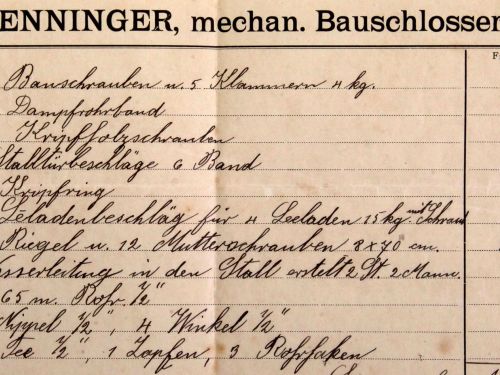 ENNINGER, mechan. Bauschlosser
F
Bauschrauben u. 5 Klammern 4 kg.
Dampfrohrband
Kripfholzschrauben
Stalltürbeschläge 6 Band
Kripfring
Leeladenbeschläg für 4 Leeladen 25 kg. mit Schraub
Riegel u. 12 Mutterschrauben 8 x 70 cm.
asserleitung in den Stall erstelt 2 St. 2 Mann.
65 m. Rohr 1/2"
Nippel 1/2", 4 Winkel 1/2"
Tee 1/2", 1 Zapfen, 3 Rohrhaken